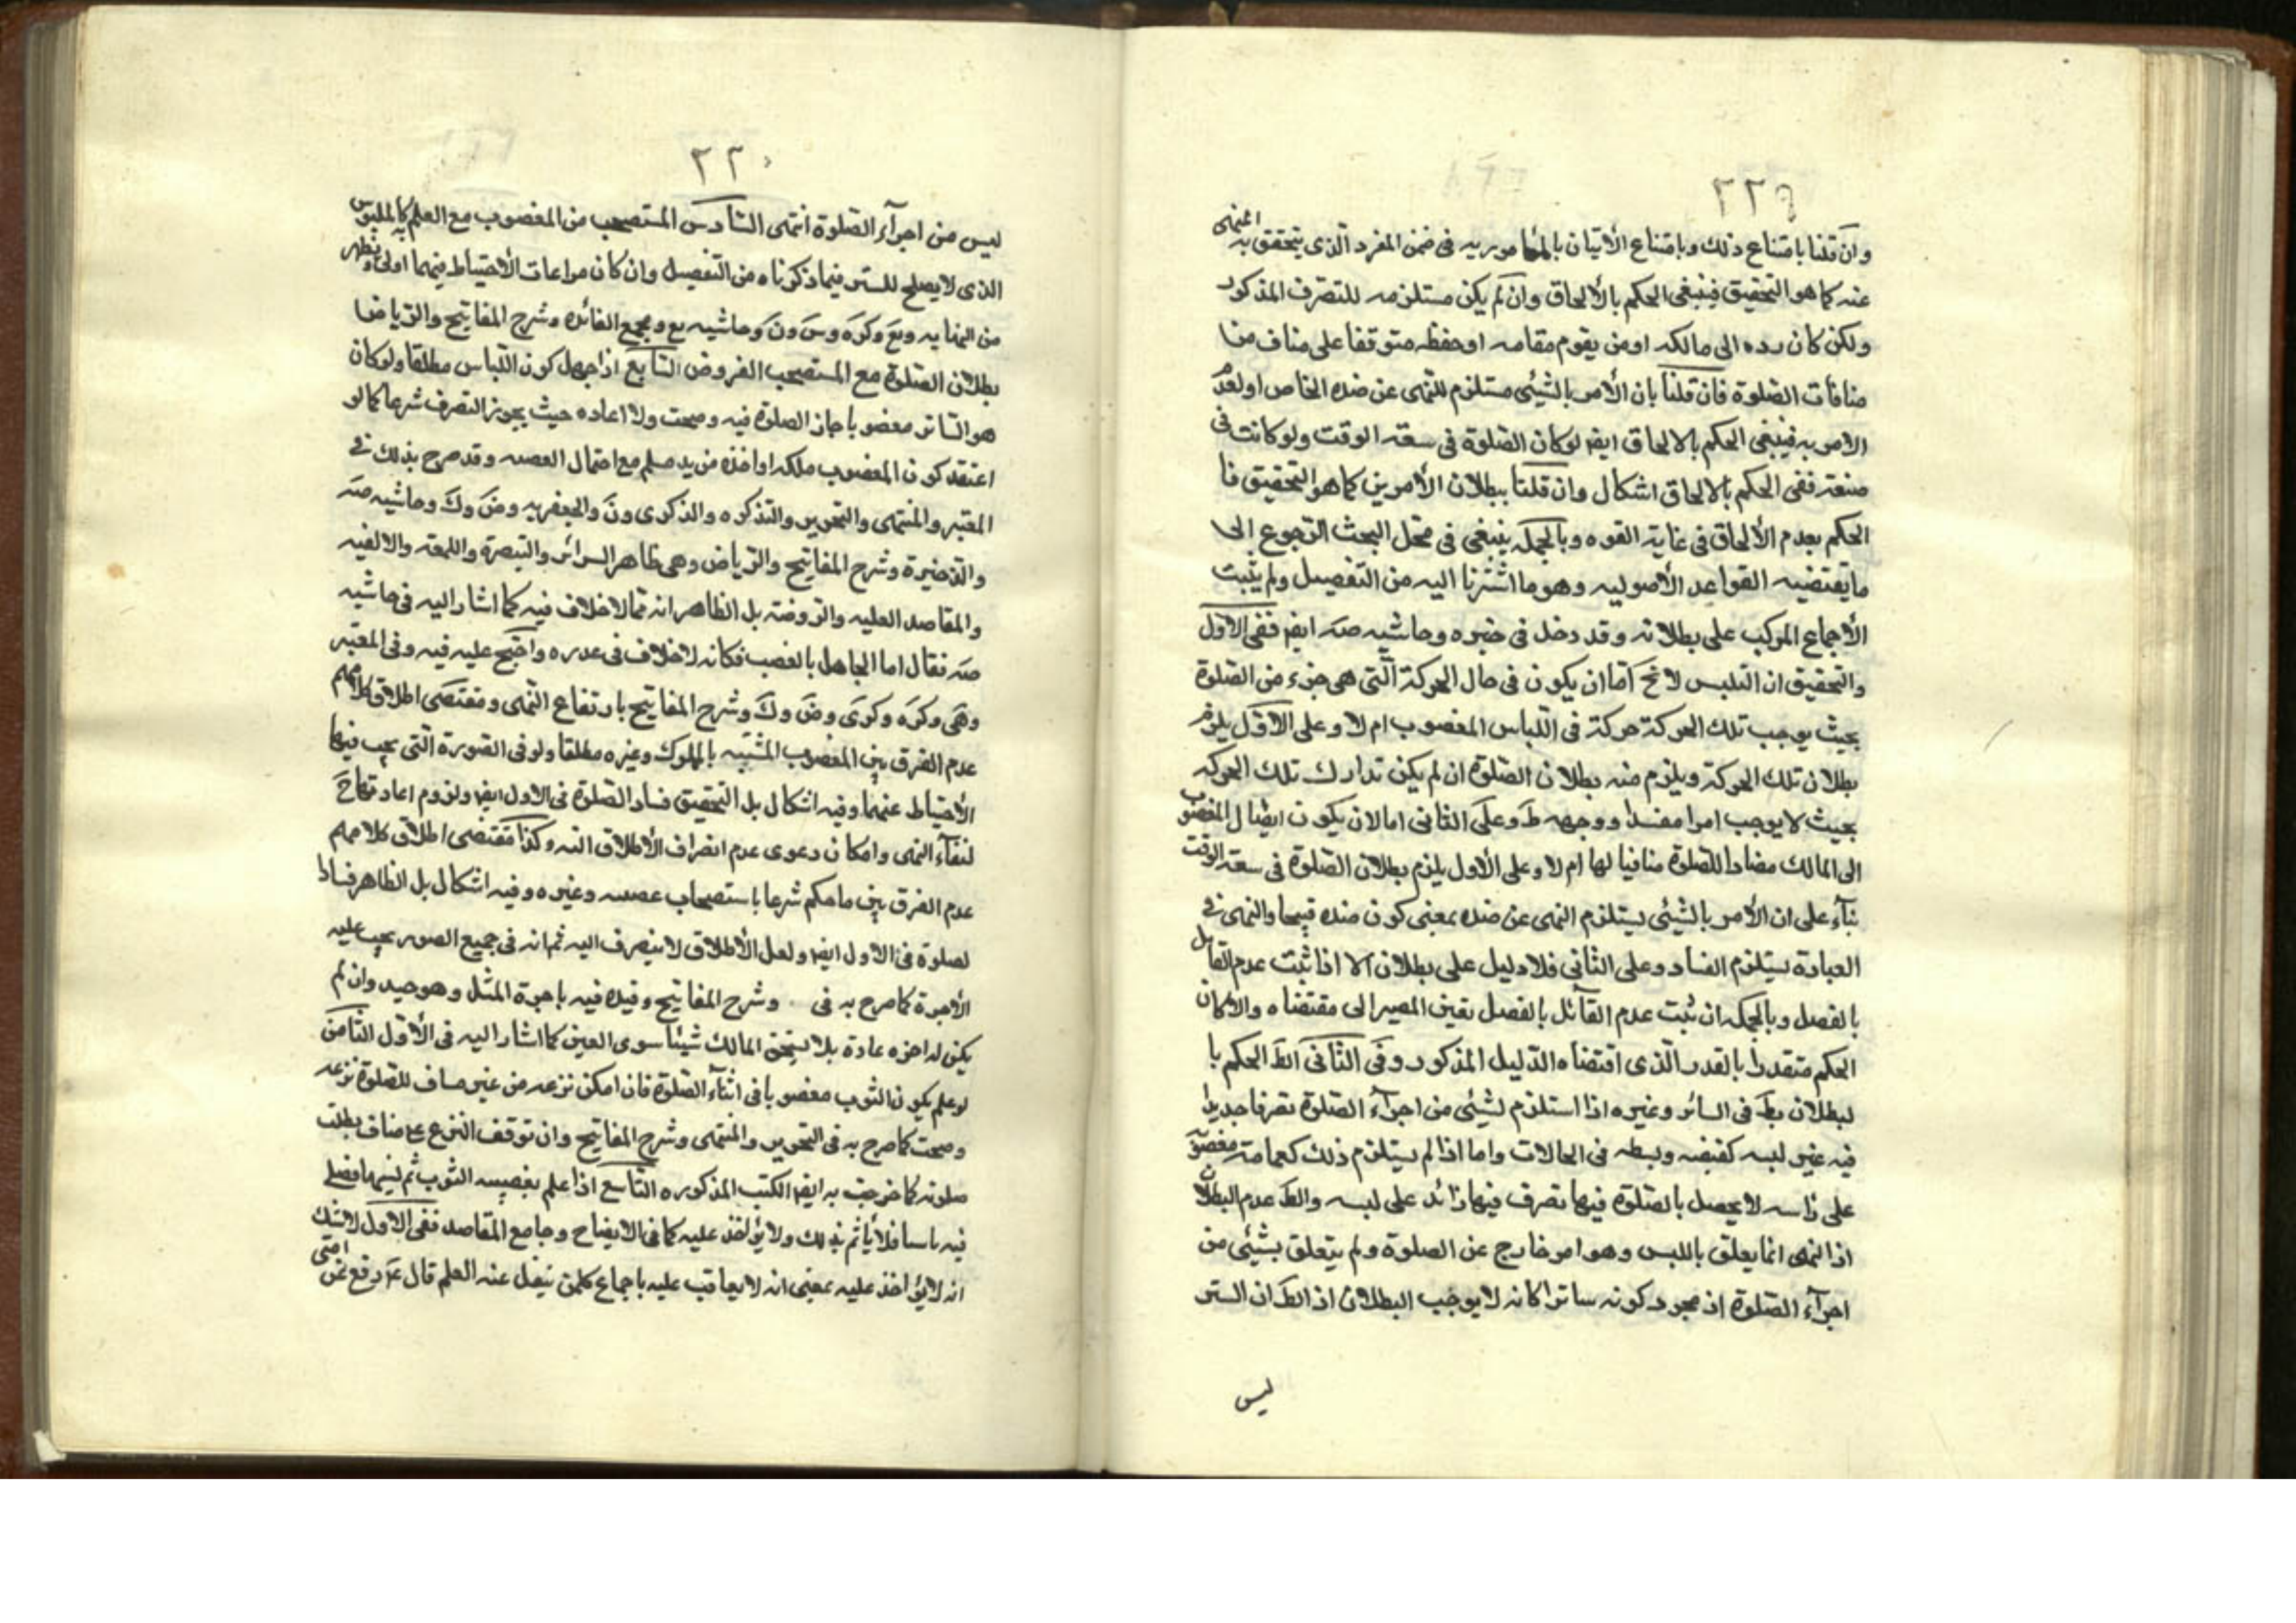 ٢٢٩
وان قلنا بامتناع ذلك وبامتناع الأتيان بالمأمور به فى ضمن المفرد الذى يتحقق به المنهى
عنه كما هو التحقيق فينبغى الحكم بالألحاق وان لم يكن مستلزمه للتصرف المذكور
ولكن كان رده الى مالكه اومن يقوم مقامه اوحفظه متوقفا على مناف من
منافات الصلوة فان قلنا بان الأمر بالشيئ مستلزم للنهى عن ضده الخاص اولعدم
الامر به فينبغى الحكم بالالحاق ايضا لوكان الصلوة فى سعة الوقت ولوكانت فى
ضيقه ففى الحكم بالالحاق اشكال وان قلنا ببطلان الأمرين كما هو التحقيق فا
الحكم بعدم الألحاق فى غاية القوه وبالجمله ينبغى فى محل البحث الرجوع الى
ما يقتضيه القواعد الأصوليه وهو ما اشرنا اليه من التفصيل ولم يثبت
الأجماع المركب على بطلانه وقد دخل فى خبره وحاشيه صه ايضا ففى الاول
والتحقيق ان التلبس لا يخ اما ان يكون فى حال الحركة التى هى جزء من الصلوة
بحيث يوجب تلك الحركة حركة فى اللباس المغصوب ام لا وعلى الاول يلزم
بطلان تلك الحركة ويلزم منه بطلان الصلوة ان لم يكن تدارك تلك الحركه
بحيث لا يوجب امرا مفسدا ووجهه ظ وعلى الثانى اما لان يكون ايصال المغصوب
الى المالك مضادا للصلوة منافيا لها ام لا وعلى الأول يلزم بطلان الصلوة فى سعة الوقت
بناء على ان الأمر بالشيئ يستلزم النهى عن ضده بمعنى كون ضده قبيحا والنهى فى
العبادة يستلزم الفساد وعلى الثانى فلا دليل على بطلان الا اذا ثبت عدم القائل
بالفصل وبالجمله ان ثبت عدم القائل بالفصل تعين المصير الى مقتضاه والا لكان
الحكم متقدرا بالقدر الذى اقتضاه الدليل المذكور وفى الثانى الظ الحكم با
لبطلان بظ فى الساتر وغيره اذا استلزم لشيئ من اجزاء الصلوة تصرفا جديدا
فيه غير لبسه كقبضه وبسطه فى الحالات واما اذا لم يستلزم ذلك كعمامة مغصوبة
على راسه لا يحصل بالصلوة فيها تصرف فيها زائد على لبسه والظ عدم البطلان
اذ النهى انما يعلق باللبس وهو امر خارج عن الصلوة ولم يتعلق بشيئ من
اجزاء الصلوة اذ مجرد كونه ساترا كانه لا يوجب البطلان اذ الظ ان الستر
ليس
٢٢٠
ليس من اجزاء الصلوة انتهى السادس المستصحب من المغصوب مع العلم به كالملبوس
الذى لا يصلح للستر فيما ذكرناه من التفصيل وان كان مراعات الأحتياط فيهما اولى ويظهر
من النهايه ويع وكره وس ون وحاشيه يع ومجمع الفائده وشرح المفاتيح والرياض
بطلان الصلوة مع المستصحب الفروض السابع اذا جهل كون اللباس مطلقا ولوكان
هو الساتر مغصوبا جاز الصلوة فيه وصحت ولا اعاده حيث يجوز التصرف شرعا كما لو
اعتقد كون المغصوب ملكه او اخذه من يد مسلم مع احتمال الغصب وقد صرح بذلك فى
المعتبر والمنتهى والتحرير والتذكره والذكرى ون والجعفريه وض وك وحاشيه صه
والذخيرة وشرح المفاتيح والرياض وهى ظاهر السرائر والتبصرة واللمعه والالفيه
والمقاصد العليه والروضه بل الظاهر انه مما لا خلاف فيه كما اشار اليه فى حاشيه
صه فقال اما الجاهل بالغصب فكانه لا خلاف فى عذره واحتج عليه فيه وفى المعتبر
وهى وكره وكرى وض وك وشرح المفاتيح بارتفاع النهى ومقتضى اطلاق كلامهم
عدم الفرق بين المغصوب المشتبه بالمملوك وغيره مطلقا ولو فى الصورة التى يجب فيها
الأحتياط عنهما وفيه اشكال بل التحقيق فساد الصلوة فى الاول ايضا ولزوم اعادتها ح
لبقاء النهى وامكان دعوى عدم انصراف الأطلاق اليه وكذا مقتضى اطلاق كلامهم
عدم الفرق بين ما حكم شرعا باستصحاب غصبه وغيره وفيه اشكال بل الظاهر فسادا
لصلوة فى الاول ايضا ولعل الأطلاق لا ينصرف اليه ثم انه فى جميع الصور يجب عليه
الأجرة كما صرح به فى وشرح المفاتيح وقيده فيه باجرة المثل وهو جيد وان لم
يكن له اجره عادة بلا يستحق المالك شيئا سوى العين كما اشار اليه فى الأول الثامن
لو علم بكون الثوب مغصوبا فى اثناء الصلوة فان امكن نزعه من غير مناف للصلوة نزعه
وصحت كما صرح به فى التحرير والمنتهى وشرح المفاتيح وان توقف النزع على مناف بطلت
صلوته كما صرحت به ايضا الكتب المذكوره التاسع اذا علم بغصبيه الثوب ثم نسيها فصلى
فيه ناسيا فلا يأثم بذلك ولا يؤاخذ عليه كما فى الايضاح وجامع المقاصد ففى الاول لا شك
انه لا يؤاخذ عليه بمعنى انه لا يعاقب عليه باجماع كلمن نيفل عنه العلم قال ع رفع عن امتى